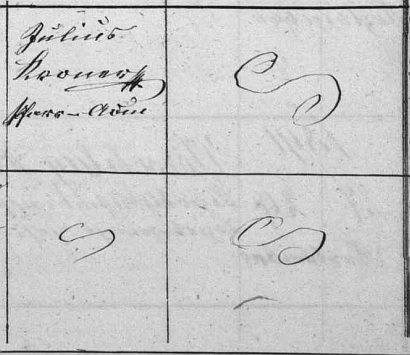 Julius
Kroner
Pfarr-Adm